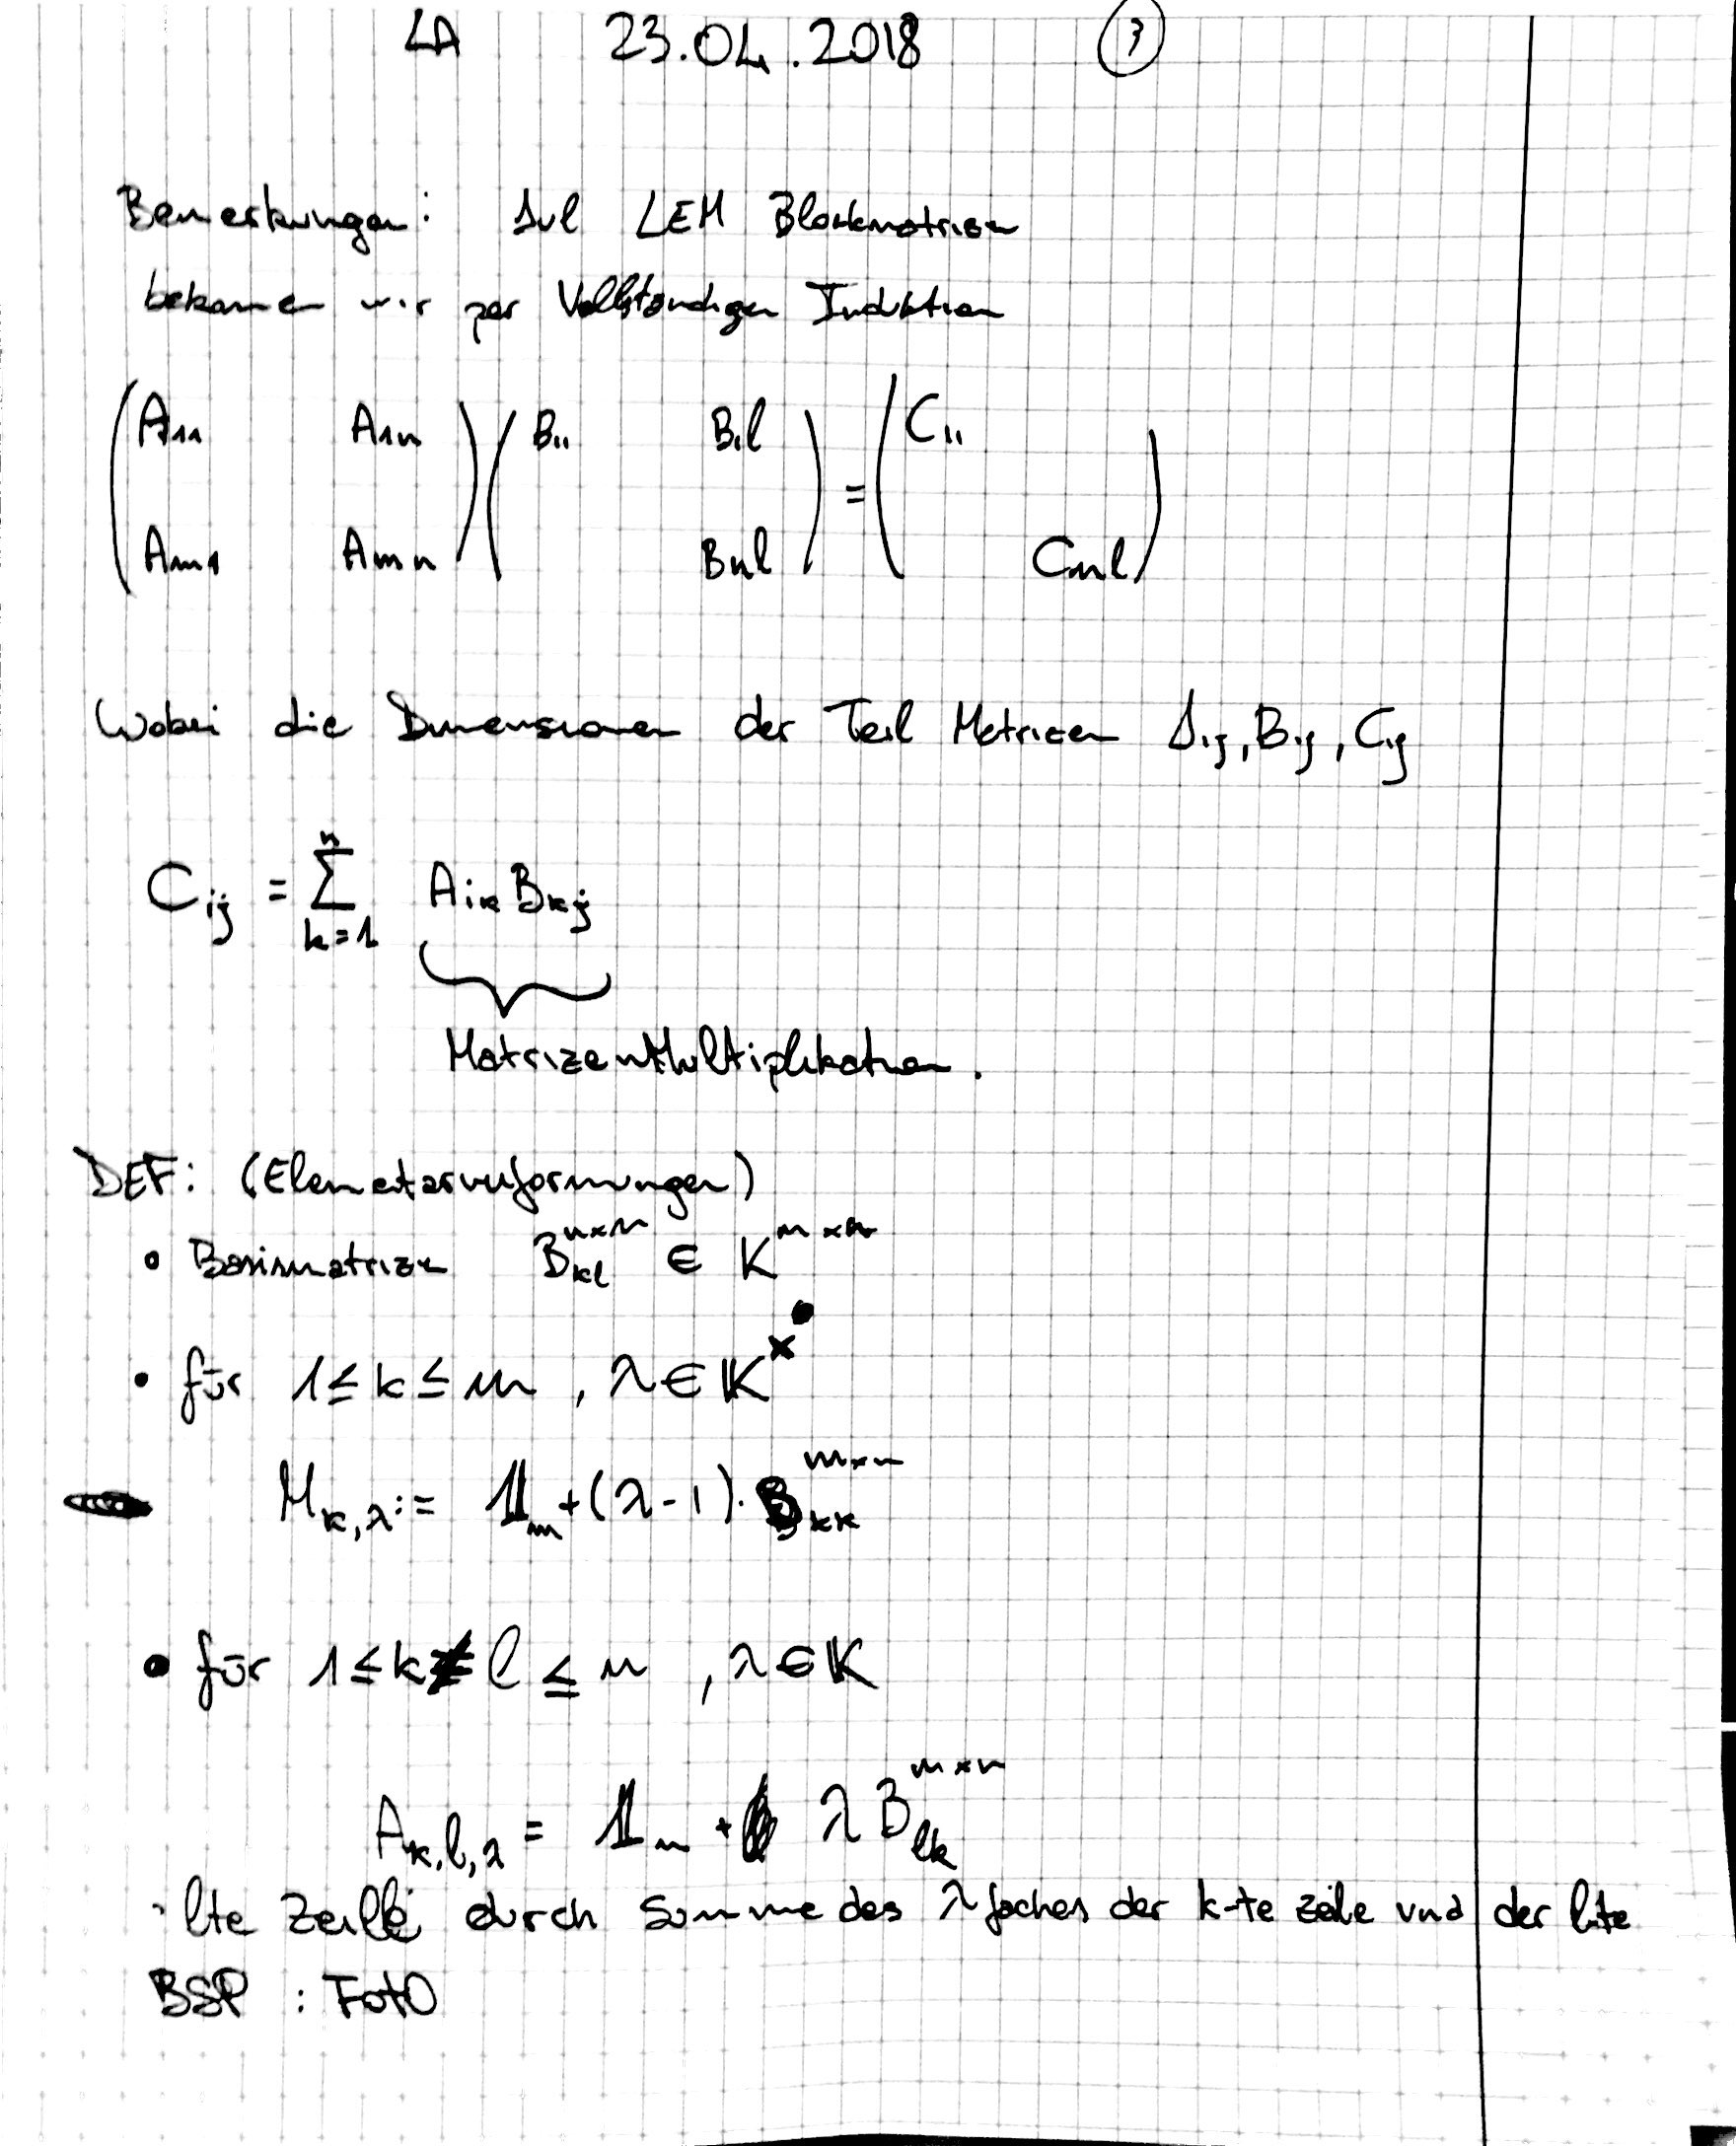 LA 23.04.2018 3
Bemerkungen: Aul LEM Blockmatrizen
bekommen wir per Vollständigen Induktion
( A₁₁ A₁ₙ ) ( B₁₁ B₁l ) = ( C₁₁
Aₘ₁ Aₘₙ ) ( Bₙl ) = Cₘl )
Wobei die Dimensionen der Teil Matrizen A_ij, B_ij, C_ij
C_ij = ∑_{k=1}^{n} A_ik B_kj
MatrizenMultiplikation.
DEF: (Elementarumformungen)
• Basismatrizen B_kl^{m×n} ∈ K^{m×n}
• für 1 ≤ k ≤ m , λ ∈ 𝕂^×
M_{k,λ} := 𝟙_m + (λ-1) · B_kk^{m×n}
• für 1 ≤ k ≠ l ≤ m , λ ∈ 𝕂
A_{k,l,λ} = 𝟙_m + λ B_lk^{m×n}
· lte Zeile durch Summe des λ fachen der k-te zeile und der lte
BSP : FotO